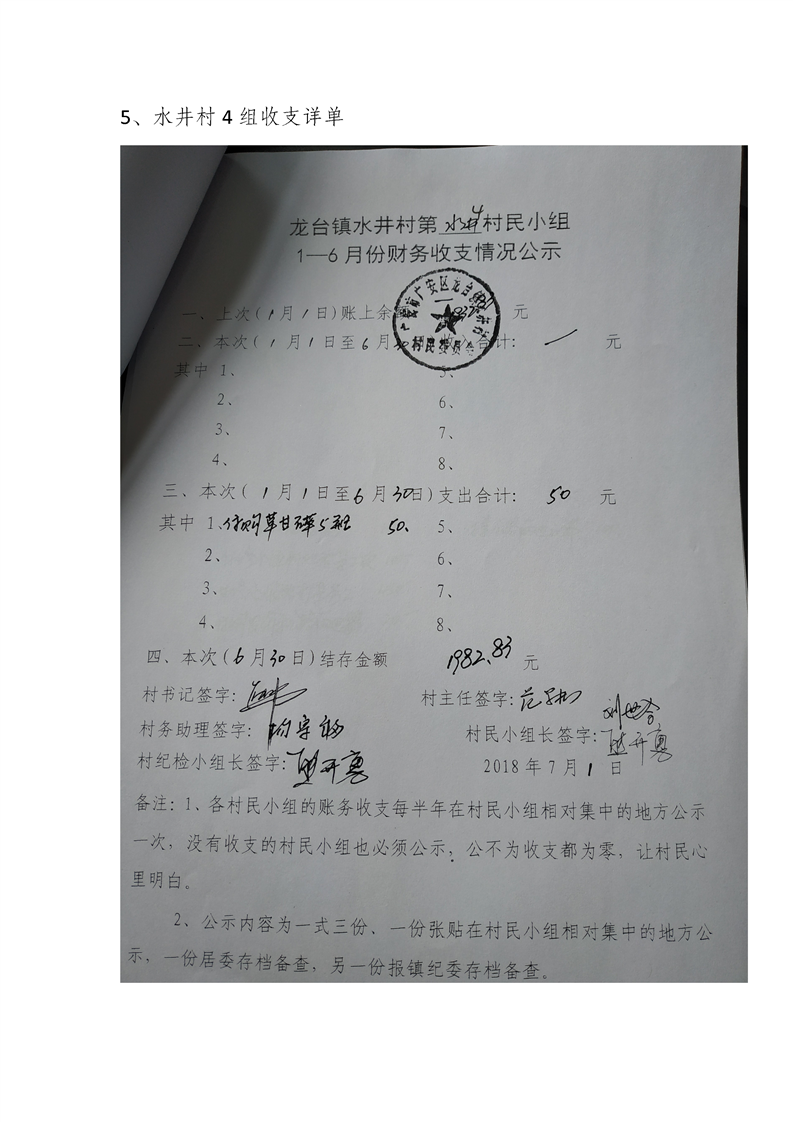 5、水井村 4 组收支详单
龙台镇水井村第水井4村民小组
1—6月份财务收支情况公示
一、上次(1月1日)账上余 元
二、本次(1月1日至6月30 收入合计: 一 元
其中 1、 5、
2、 6、
3、 7、
4、 8、
三、本次(1月1日至6月30日)支出合计: 50 元
其中 1、 草甘 50、 5、
2、 6、
3、 7、
4、 8、
四、本次(6月30日)结存金额 1982.83 元
村书记签字: 村主任签字:
村务助理签字: 村民小组长签字:
村纪检小组长签字: 2018年7月1日
备注:1、各村民小组的账务收支每半年在村民小组相对集中的地方公示
一次,没有收支的村民小组也必须公示,公不为收支都为零,让村民心
里明白。
2、公示内容为一式三份、一份张贴在村民小组相对集中的地方公
示,一份居委存档备查,另一份报镇纪委存档备查。
广安区龙台
村民委员会